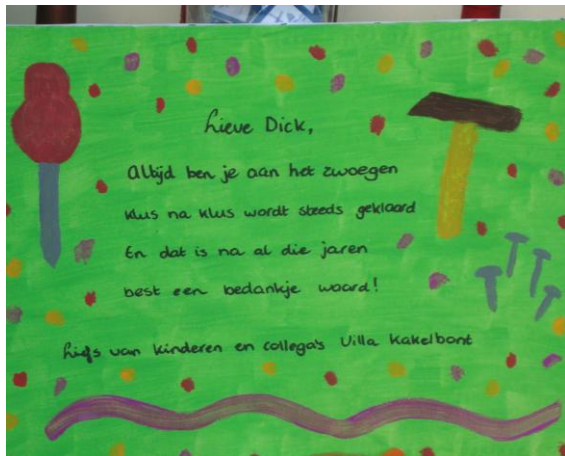 Lieve Dick,
Altijd ben je aan het zwoegen
Klus na klus wordt steeds geklaard
En dat is na al die jaren
best een bedankje waard!
Liefs van kinderen en collega's Villa Kakelbont